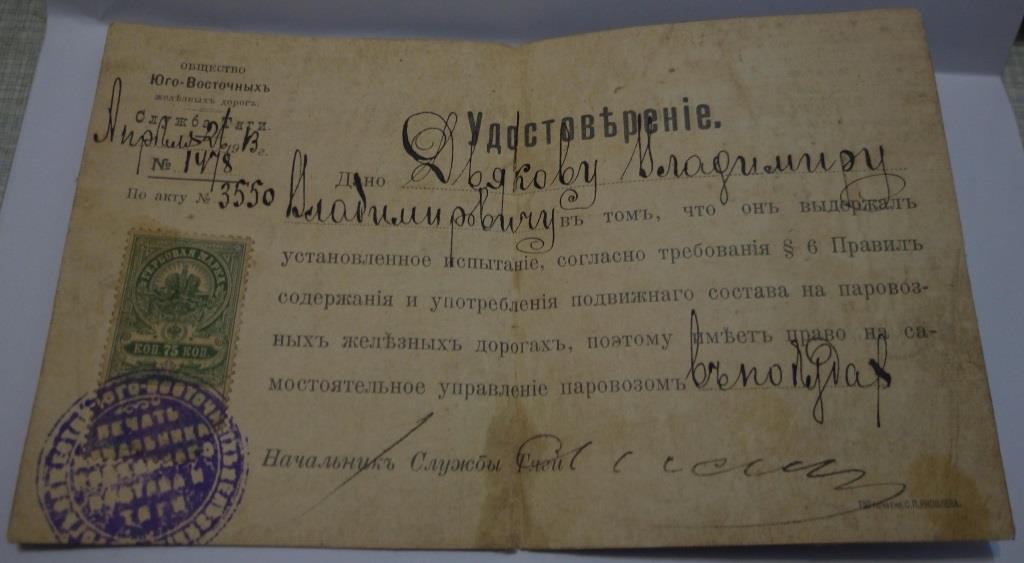 ОБЩЕСТВО
Юго-Восточныхъ
желѣзныхъ дорогъ.
Служба Тяги.
Апрѣля 26 1913 г.
№ 1478
По акту № 3550
Удостовѣреніе.
Дано Дьякову Владимиру
Владимировичу въ томъ, что онъ выдержалъ
установленное испытаніе, согласно требованія § 6 Правилъ
содержанія и употребленія подвижнаго состава на паровоз-
ныхъ желѣзныхъ дорогахъ, поэтому имѣетъ право на са-
мостоятельное управленіе паровозомъ
Начальникъ Службы Тяги
ГЕРБОВАЯ МАРКА
КОП 75 КОП
ПЕЧАТЬ
Типо-литогр. С.П.Яковлева.